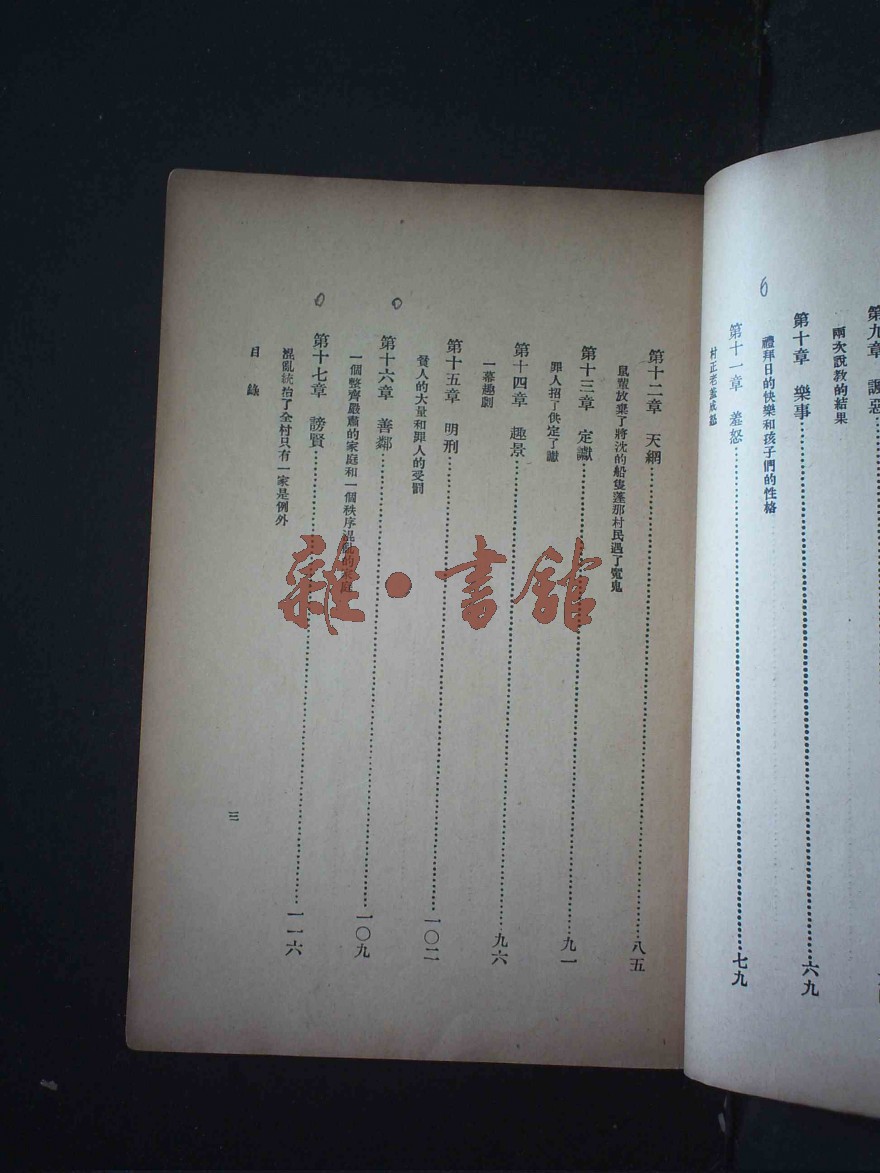 第九章 譏惡
兩次說教的結果
第十章 樂事……六九
禮拜日的快樂和孩子們的性格
第十一章 羞怒……七九
村正老羞成怒
第十二章 天網……八五
鼠輩放棄了將沈的船隻蓬那村民遇了冤鬼
第十三章 定讞……九一
罪人招了供定了讞
第十四章 趣景……九六
一幕趣劇
第十五章 明刑……一〇二
賢人的大量和罪人的受罰
第十六章 善鄰……一〇九
一個整齊嚴肅的家庭和一個秩序混亂的家庭
第十七章 謗賢……一一六
混亂統治了全村只有一家是例外
目錄
三
6
雜·書館